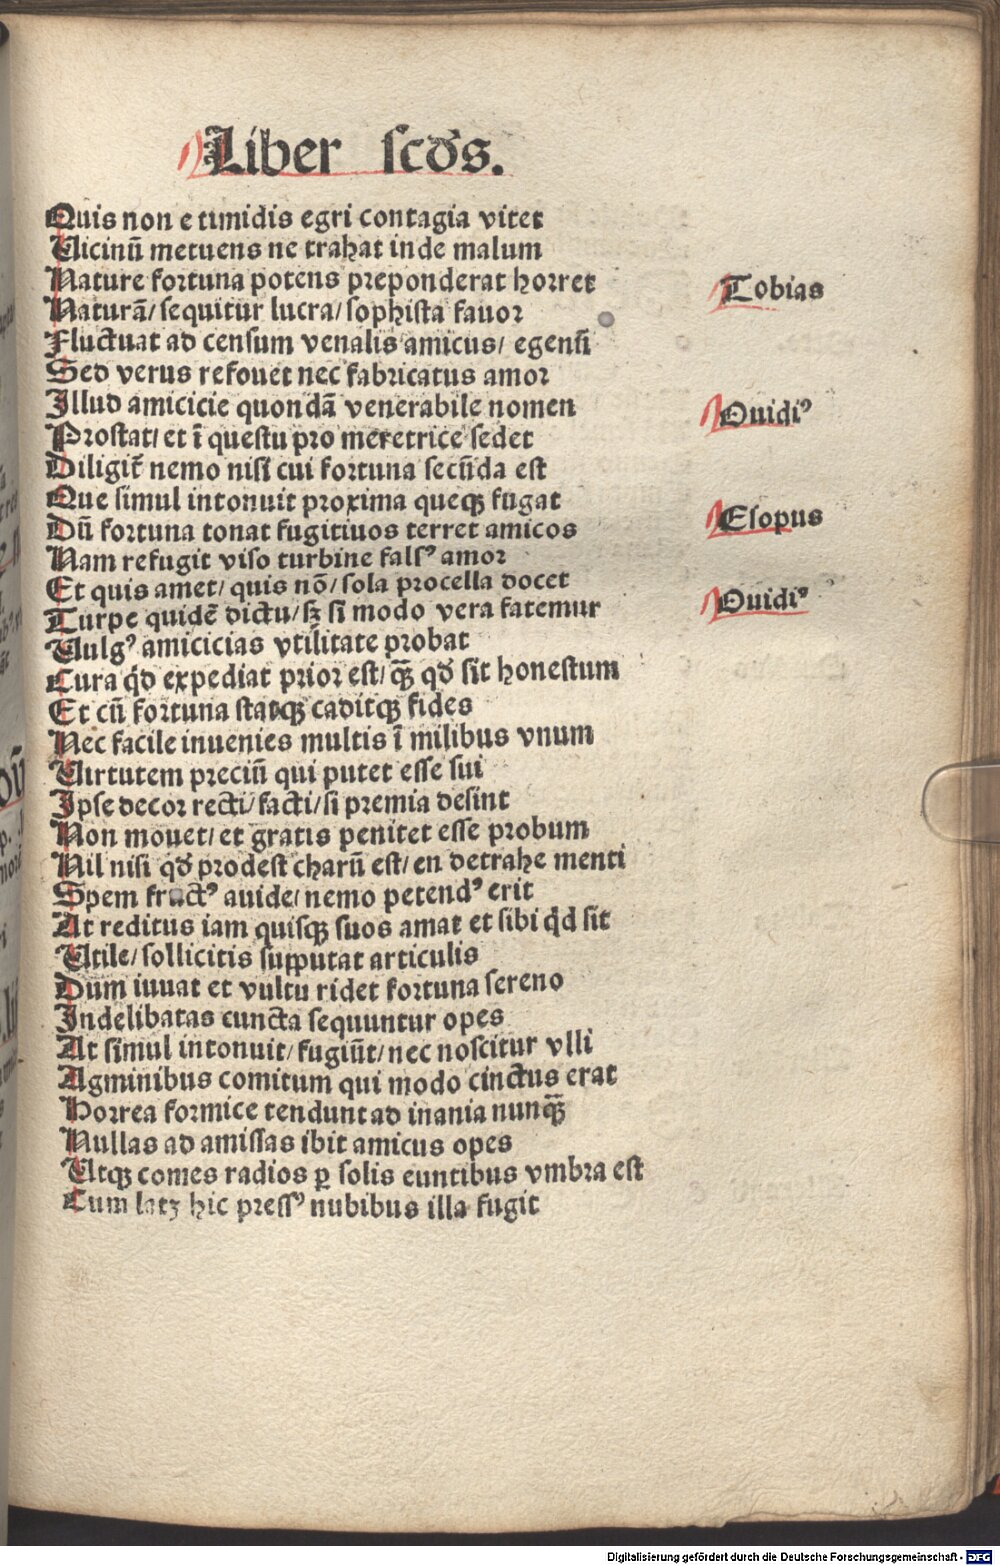 Liber scd̄s.
Quis non e timidis egri contagia vitet
Uicinū metuens ne trahat inde malum
Nature fortuna potens preponderat horret
Tobias
Naturā/ sequitur lucra/ sophista fauor
Fluctuat ad censum venalis amicus/ egensq̄
Sed verus refouet nec fabricatus amor
Illud amicicie quondā venerabile nomen
Ouidiꝰ
Prostat/ et ī questu pro meretrice sedet
Diligit̄ nemo nisi cui fortuna secūda est
Que simul intonuit proxima queqꝫ fugat
Dū fortuna tonat fugitiuos terret amicos
Esopus
Nam refugit viso turbine falsꝰ amor
Et quis amet/ quis nō/ sola procella docet
Turpe quidē dictu/ sꝫ si modo vera fatemur
Ouidiꝰ
Uulgꝰ amicicias vtilitate probat
Cura qd̄ expediat prior est/ qꝫ̄ qd̄ sit honestum
Et cū fortuna statqꝫ caditqꝫ fides
Nec facile inuenies multis ī milibus vnum
Uirtutem preciū qui putet esse sui
Ipse decor recti/ facti/ si premia desint
Non mouet/ et gratis penitet esse probum
Nil nisi qd̄ prodest charū est/ en detrahe menti
Spem fructꝰ auide/ nemo petendꝰ erit
At reditus iam quisqꝫ suos amat et sibi qd̄ sit
Utile/ sollicitis supputat articulis
Dum iuuat et vultu ridet fortuna sereno
Indelibatas cuncta sequuntur opes
At simul intonuit/ fugiūt/ nec noscitur vlli
Agminibus comitum qui modo cinctus erat
Horrea formice tendunt ad inania nunqꝫ̄
Nullas ad amissas ibit amicus opes
Utqꝫ comes radios ꝑ solis euntibus vmbra est
Cum latꝫ hic pressꝰ nubibus illa fugit
Digitalisierung gefördert durch die Deutsche Forschungsgemeinschaft - DFG